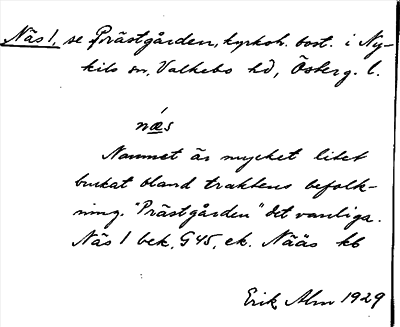 Näs 1, se Prästgården, kyrkoh. bost. i Ny-
kils sn, Valkebo hd, Österg. l.
næs
Namnet är mycket litet
brukat bland traktens befolk-
ning. "Prästgården" det vanliga.
Näs 1 bek. G45, ek. Nääs kb
Erik Alm 1929